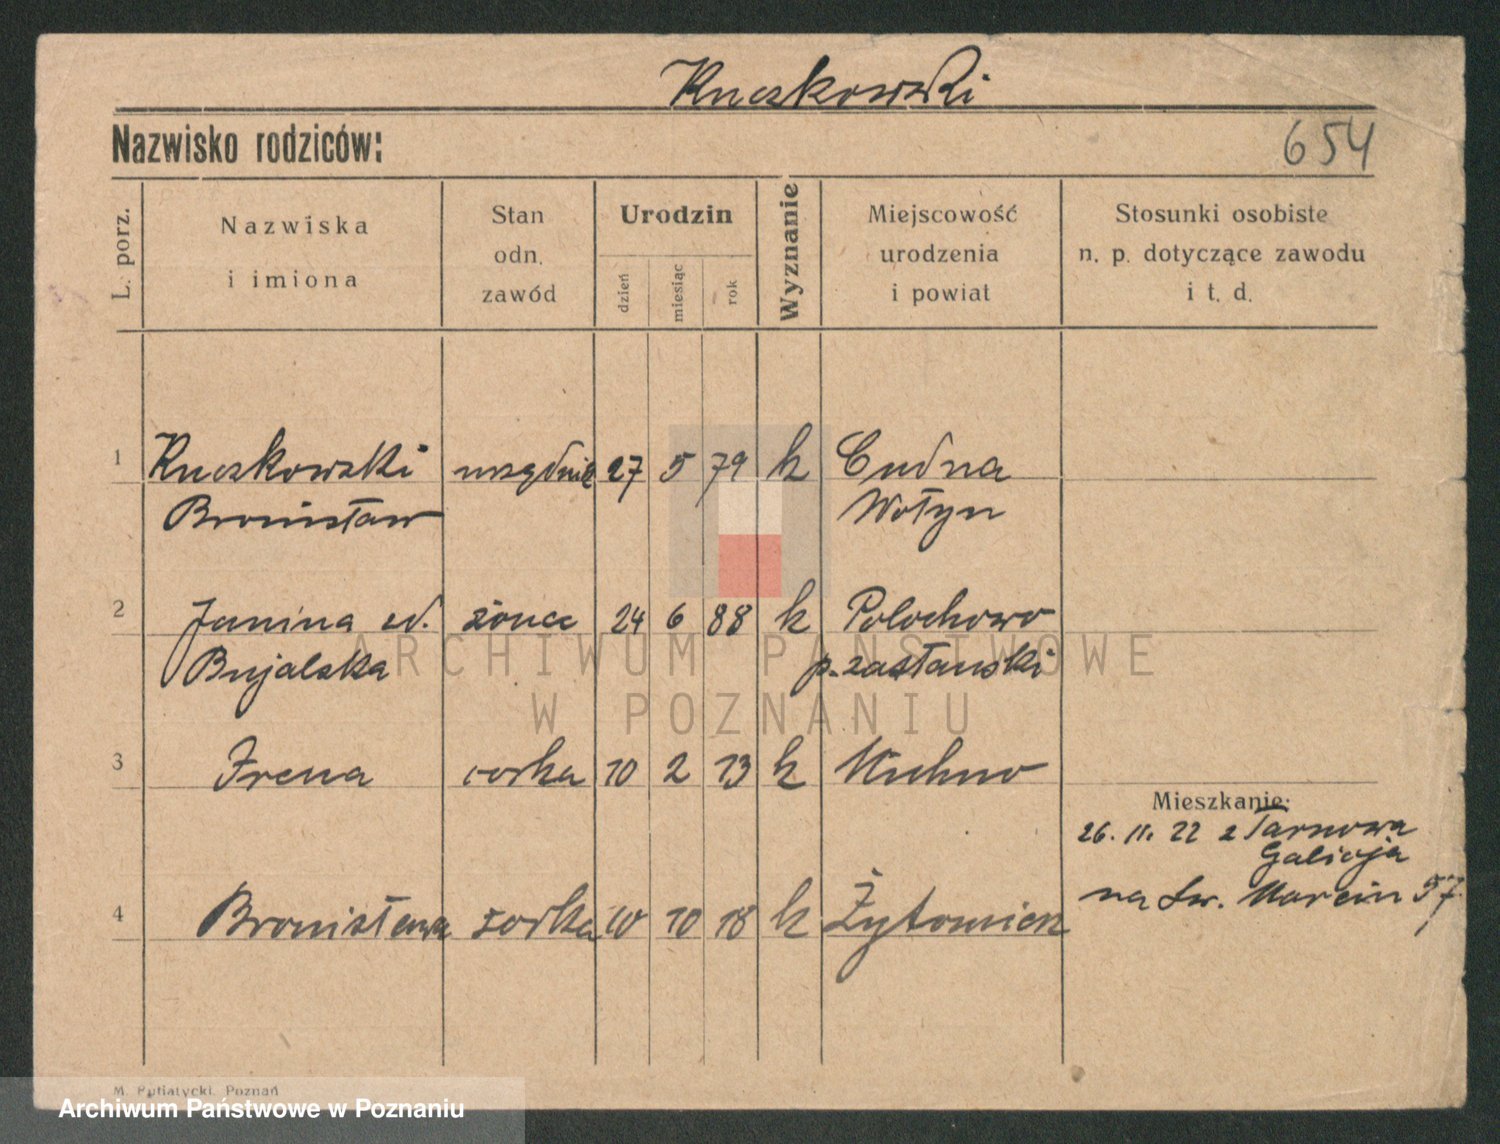 Ruczkowski
Nazwisko rodziców:
654
L. porz.
Nazwiska
i imiona
Stan
odn.
zawód
Urodzin
dzień
miesiąc
rok
Wyznanie
Miejscowość
urodzenia
i powiat
Stosunki osobiste
n. p. dotyczące zawodu
i t. d.
1 Ruczkowski urzędnik 27 5 79 k Cudna
Bronisław Wołyn
2 Janina ur. żona 24 6 88 k Polochowo
Bujalska p. zasławski
ARCHIWUM PAŃSTWOWE
W POZNANIU
3 Irena corka 10 2 13 k
Mieszkanie:
26. 11. 22 z Tarnowa
Galicja
na Św. Marcin 57
4 Bronisława corka 10 10 18 k Żytomierz
M. Putiatycki, Poznań
Archiwum Państwowe w Poznaniu